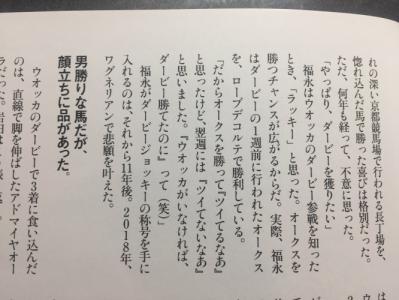 れの深い京都競馬場で行われる長丁場を、
惚れ込んだ馬で勝った喜びは格別だった。
ただ、何年も経って、不意に思った。
「やっぱり、ダービーを獲りたい」
福永はウオッカのダービー参戦を知った
とき、「ラッキー」と思った。オークスを
勝つチャンスが広がるからだ。実際、福永
はダービーの1週前に行われたオークス
を、ローブデコルテで勝利している。
「だからオークスを勝って『ツイてるなあ』
と思ったけど、翌週には『ツイてないなあ』
と思いました。『ウオッカがいなければ、
ダービー勝てたのに』って（笑）」
福永がダービージョッキーの称号を手に
入れるのは、それから11年後。2018年、
ワグネリアンで悲願を叶えた。
男勝りな馬だが、
顔立ちに品があった。
ウオッカのダービーで3着に食い込んだ
のは、直線で脚を伸ばしたアドマイヤオー